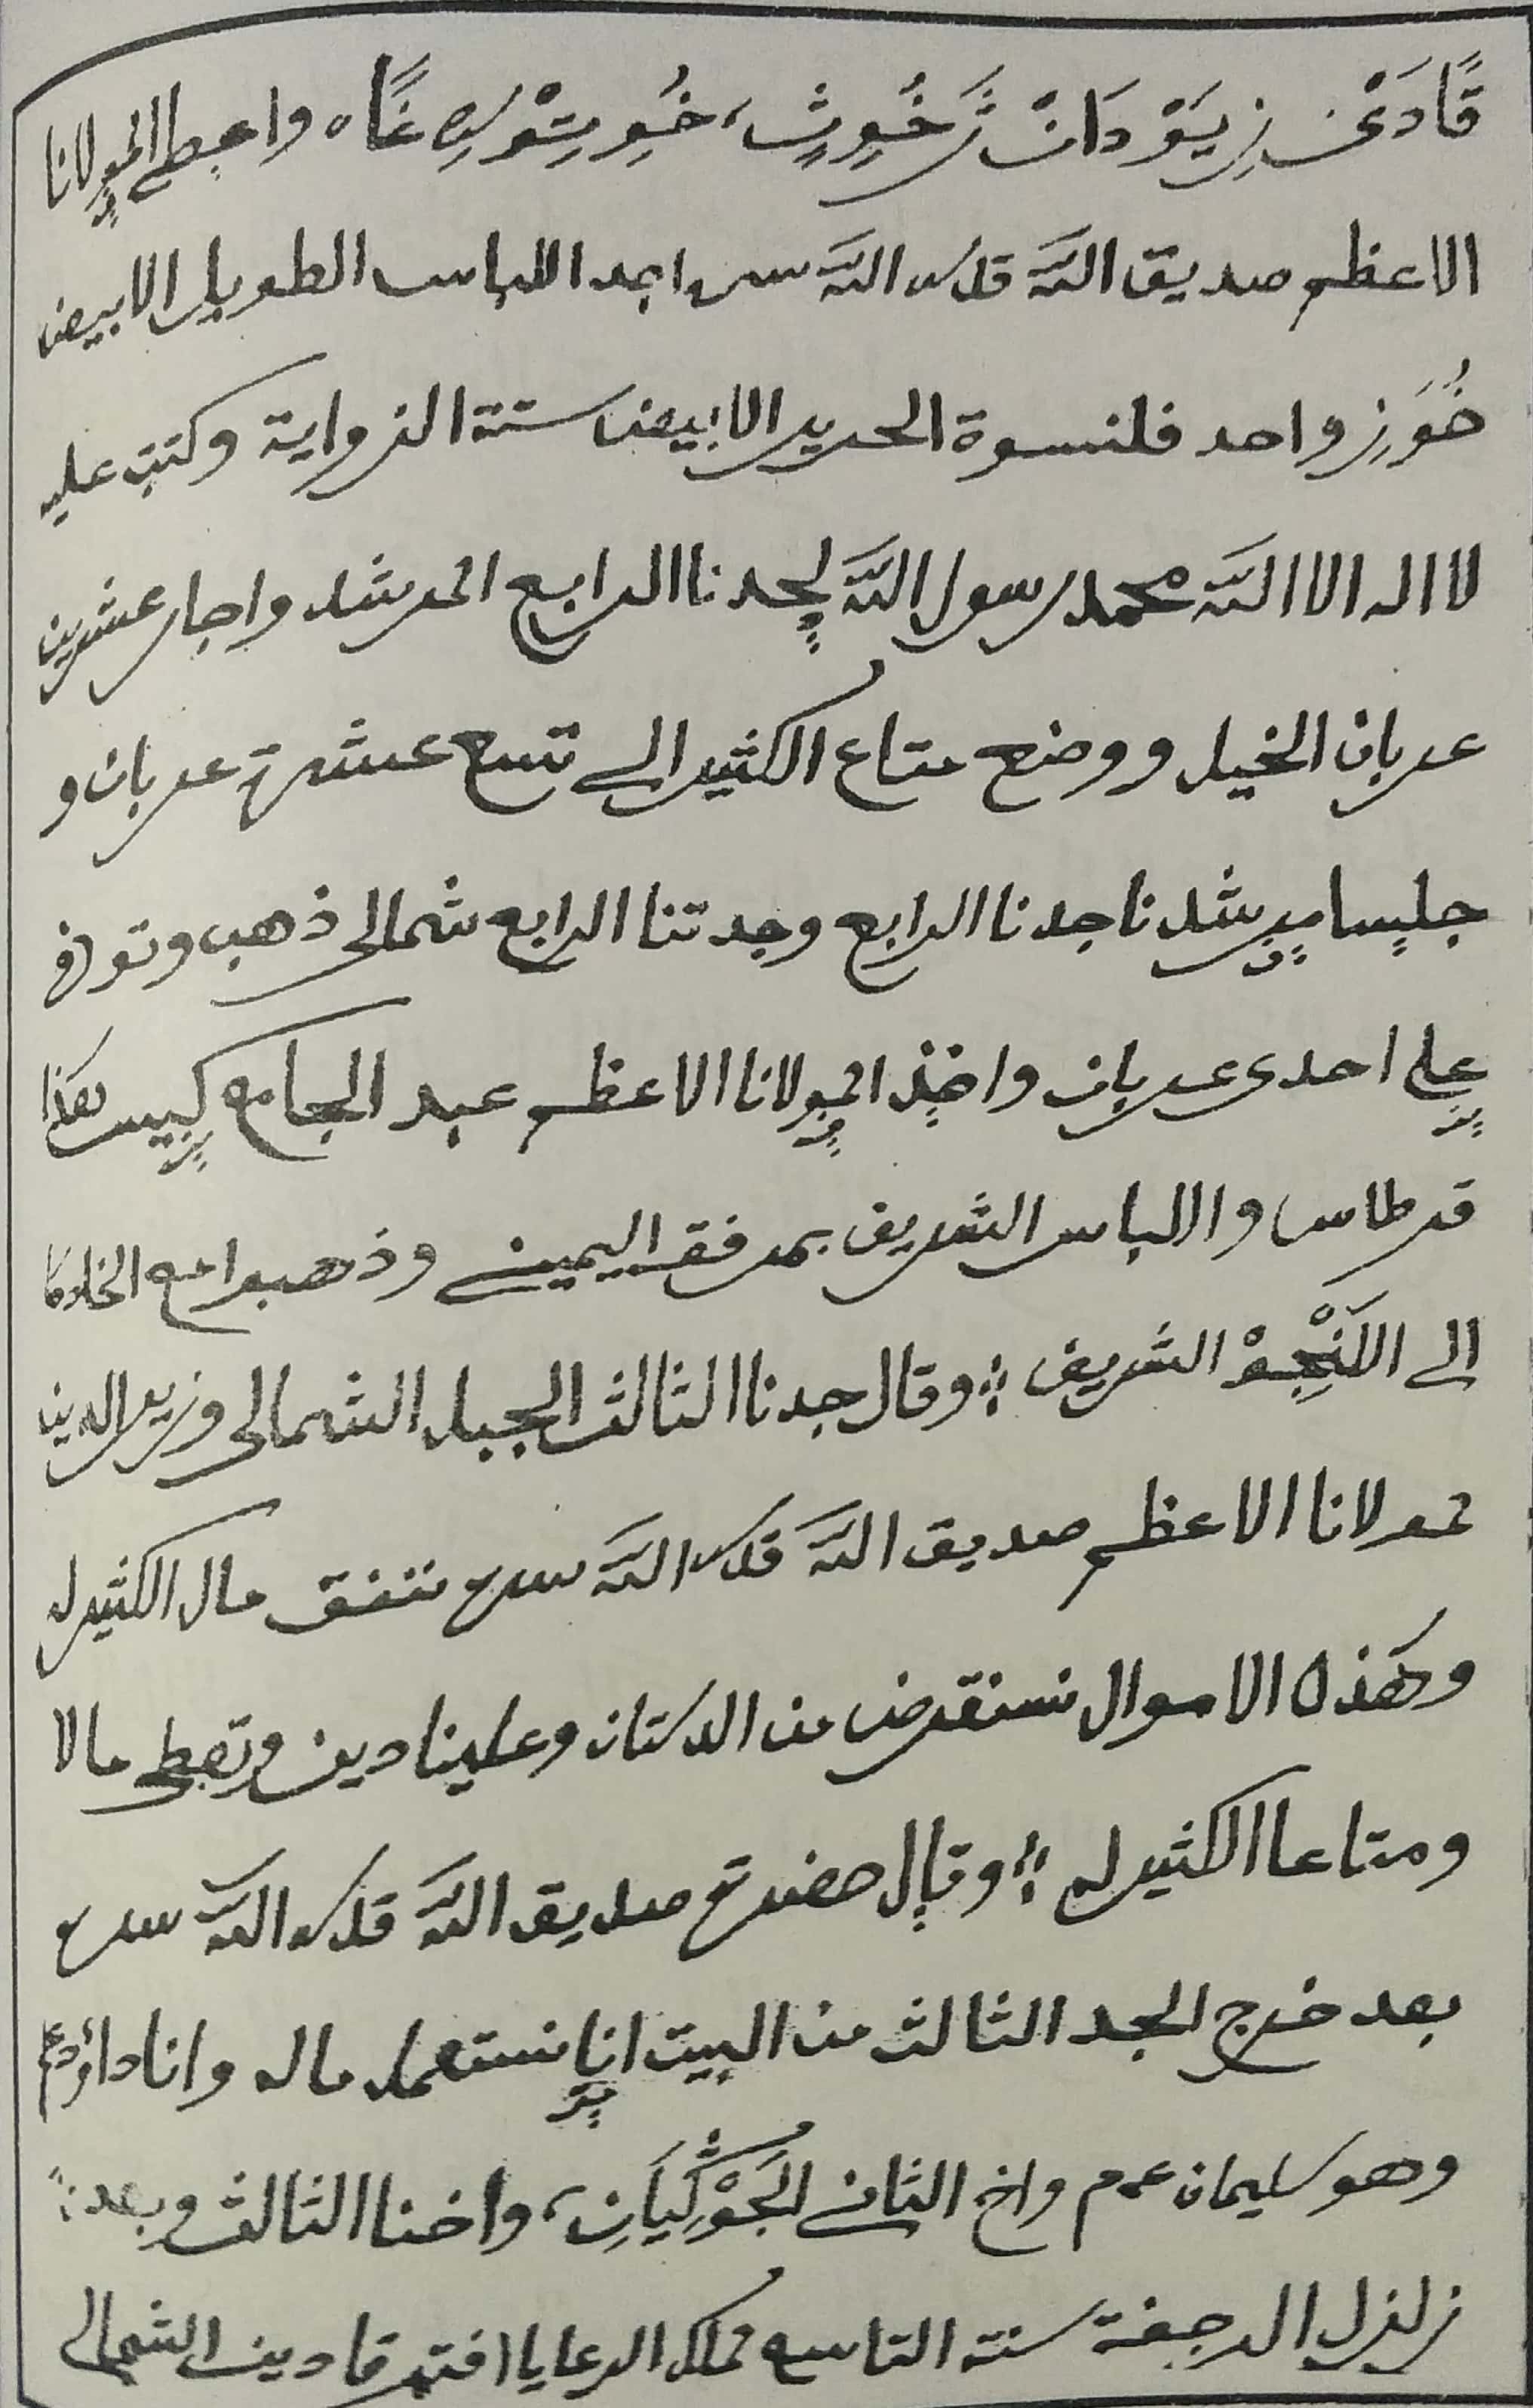 واعطى المولانا
الاعظم صديق اللّٰه قدس اللّٰه سره ابعد اللباس الطويل الابيض
واحد قلنسوة الحرير الابيض ستة الزواية وكتب عليه
لا اله الا اللّٰه محمد رسول اللّٰه لجدنا الرابع المرشد واجار عشرين
عربان الخيل ووضع متاع الكثير الى تسع عشرة عربان و
جليسا مرشدنا جدنا الرابع وجدتنا الرابع شمالى ذهب وتوفى
على احدى عربان واخذ المولانا الاعظم عبد الجامع كيس هذا
قرطاس واللباس الشريف بمرفقه اليمينى وذهبوا مع
الى اللَنْجِوْ الشريف ؞ وقال جدنا الثالث الجبل الشمالى وزير الدين
لمولانا الاعظم صديق اللّٰه قدس اللّٰه سره ننفق مال الكثير له
وهذه الاموال نستقرض من الدكتان وعلينا دين ونعطى مالا
ومتاعا الكثير له ؞ وقال حضرة صديق اللّٰه قدس اللّٰه سره
بعد خرج الجد الثالث من البيت انا نستعمل ماله وانا داؤد
وهو سليمان عم واخ الثانى واخنا الثالث وبعد
زلزل الرجفة سنة التاسع الرعايا افترقا دين الشمالى